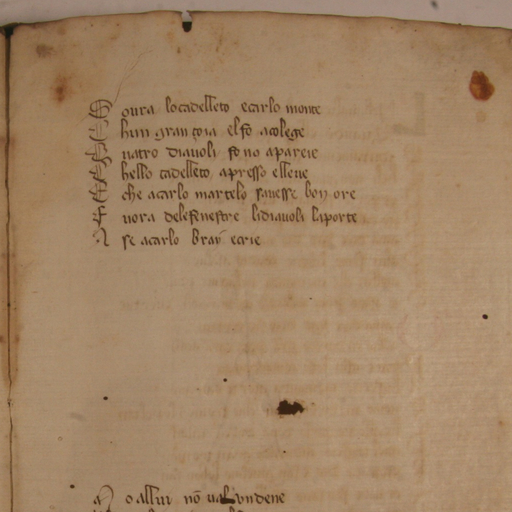 S oura lo cadelleto e carlo monte
C hun gran çoia el fo acolege
Q uatro diauoli fono apareie
E hello cadelleto apresso elleue
E che acarlo martelo fauesse bon ore
F uora dele fenestre li diauoli la porte
A se acarlo braý e crie
a o allui nō ual undene